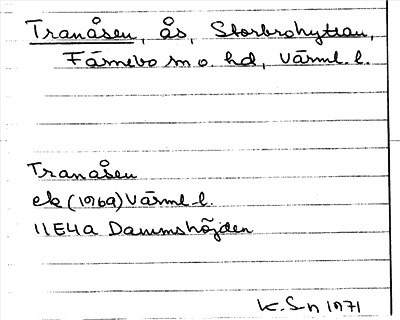 Tranåsen, ås, Storbrohyttan,
Färnebo sn o. hd, Värml. l.
Tranåsen
ek (1969) Värml. l.
11E4a Dammshöjden
K. S-n 1971